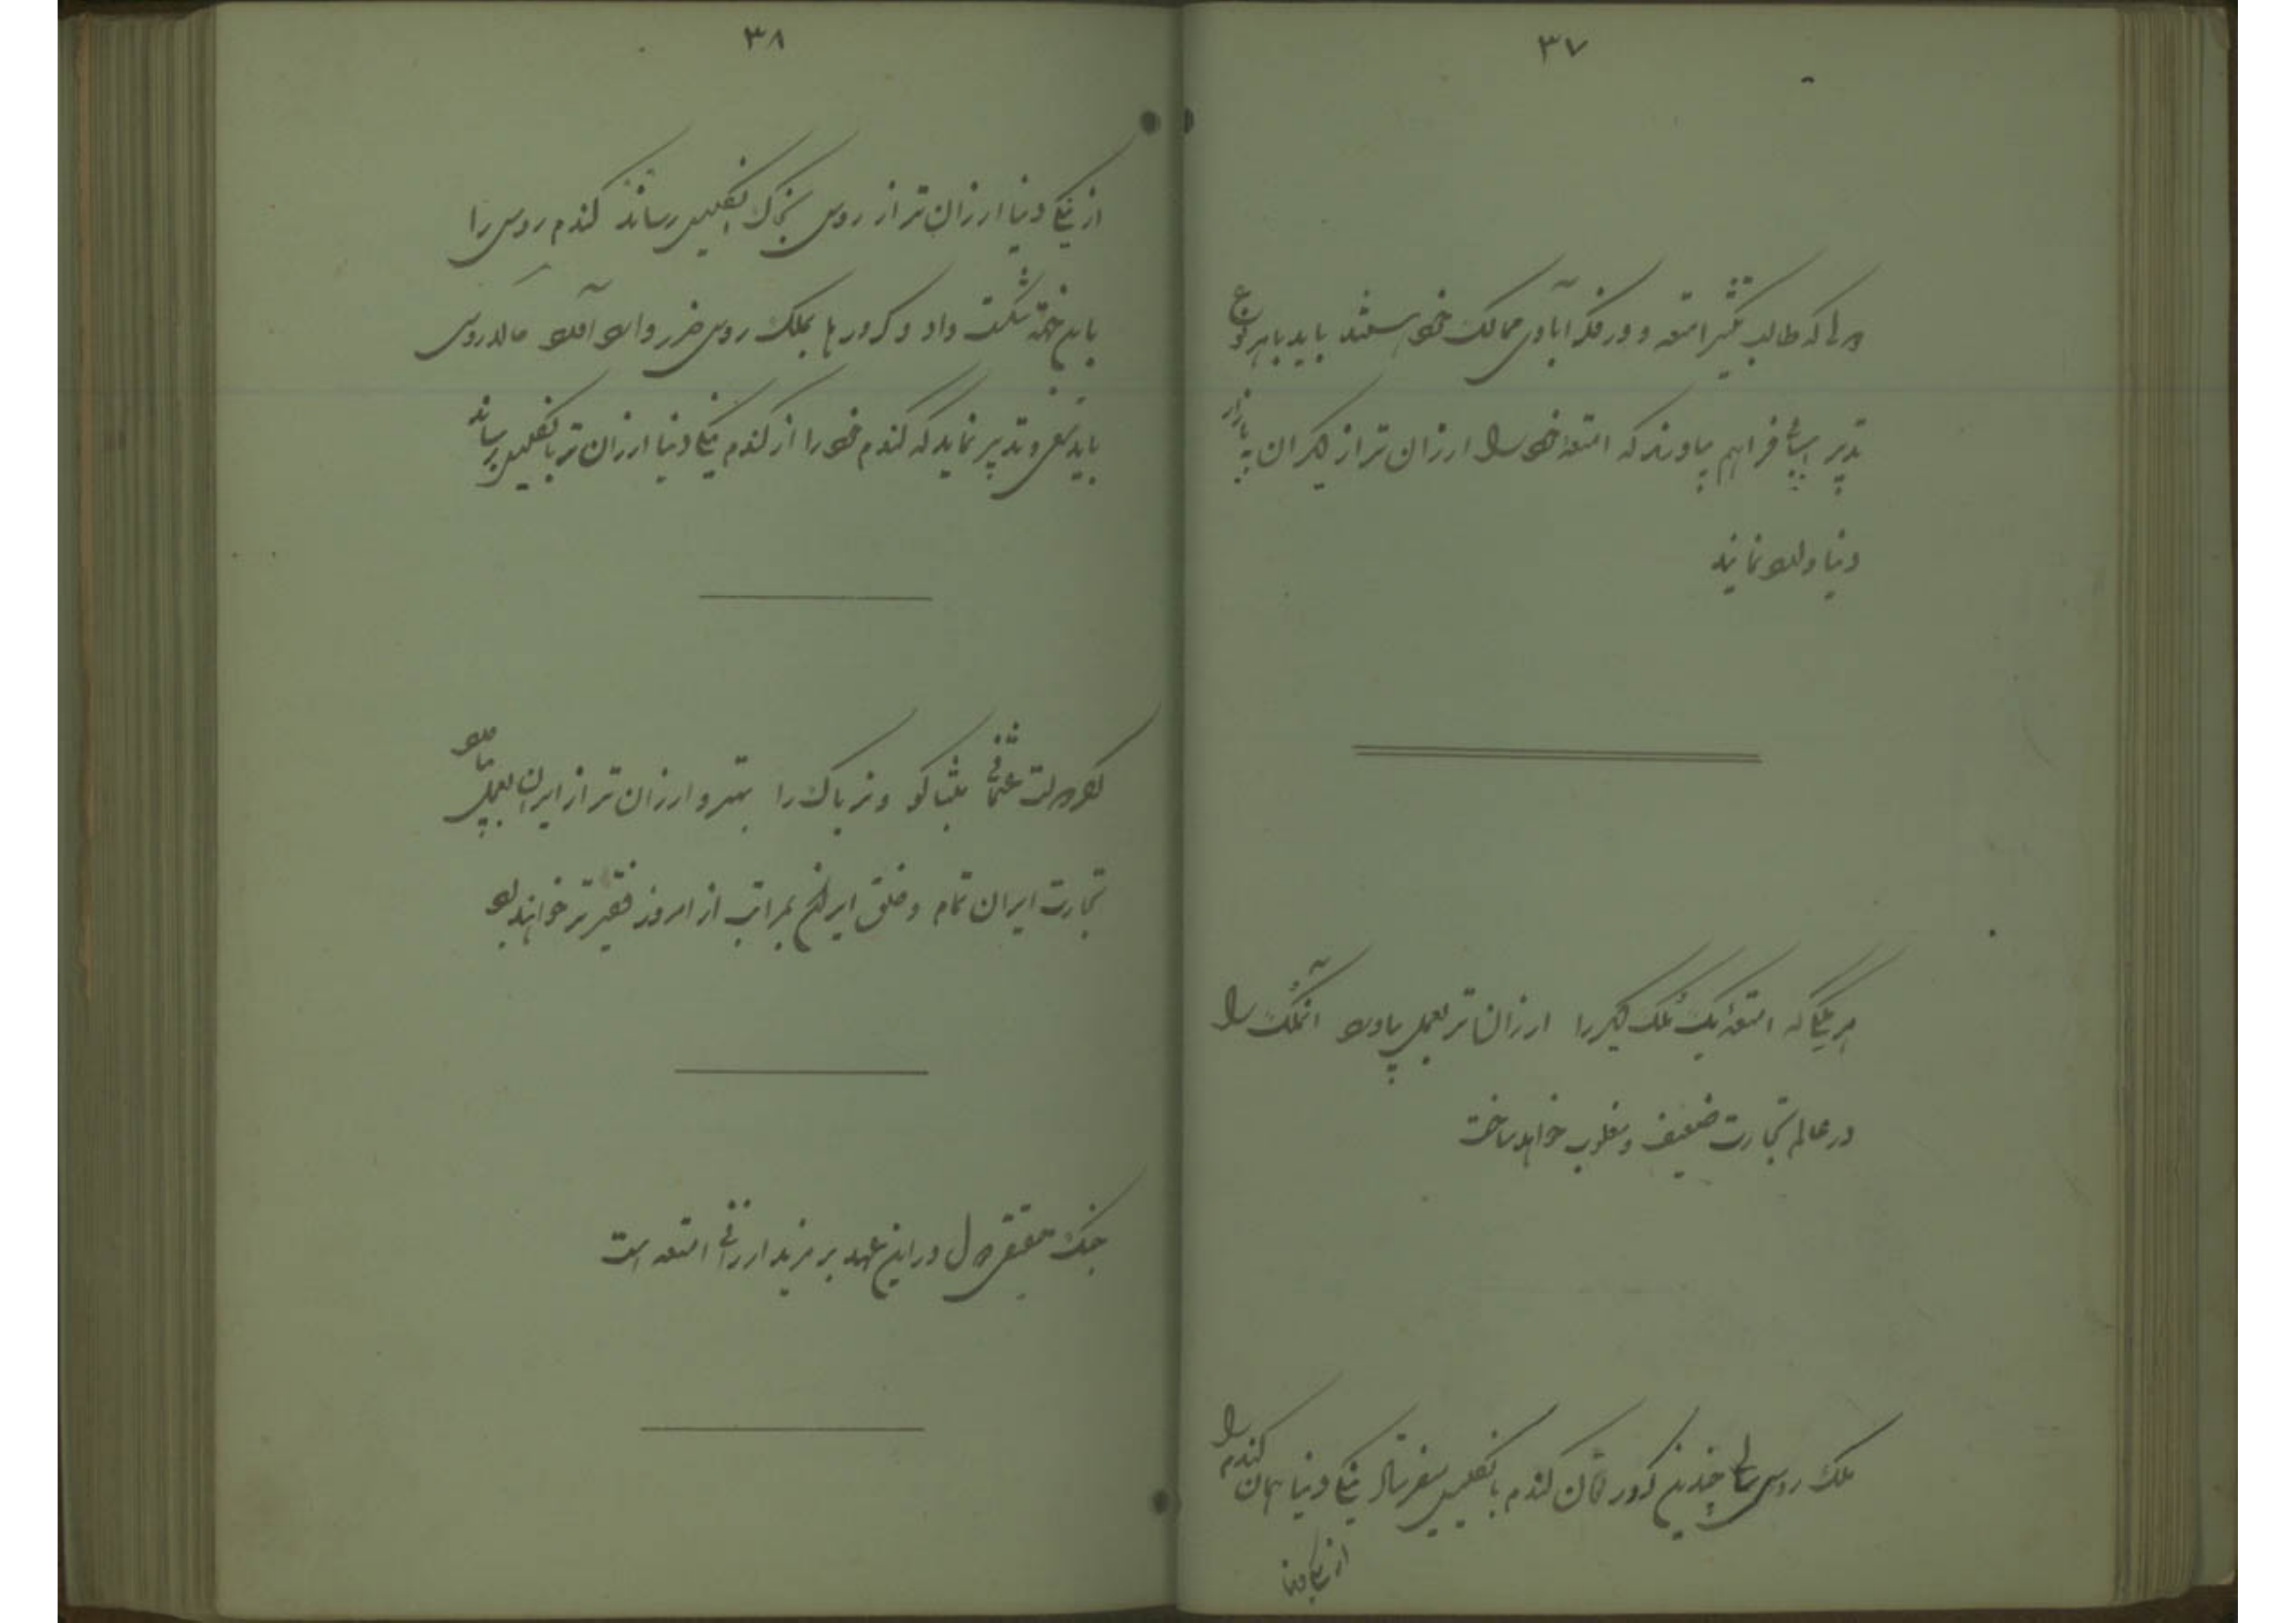 ۳۷
دولی که طالب تکثیر امتعه و در فکر آبادی ممالک خود هستند باید بهر نوع
تدبیر اسبابی فراهم بیاورند که امتعه خود را ارزان تر از دیگران به بازار
دنیا وارد نمایند
هر ملکی که امتعهٔ یک ملک دیگر را ارزان تر بعمل بیاورد آنملک را
در عالم تجارت ضعیف و مغلوب خواهد ساخت
ملک روس سالی چندین کرور تومان گندم بانگلیس میفرستد ینگی دنیا همان گندم را
از ینگی دنیا
۳۸
از ینگی دنیا ارزان تر از روس بخاک انگلیس رساند گندم روس را
باین جهة شکست داد و کرورها بملک روس ضرر وارد آورد حالا روس
باید سعی و تدبیر نماید که گندم خود را از گندم ینگی دنیا ارزان تر بانگلیس برساند
اگر دولت عثمانی تنباکو و تریاک را بهتر و ارزان تر از ایران بعمل بیاورد
تجارت ایران تمام و خلق ایران بمراتب از امروز فقیرتر خواهند بود
جنگ حقیقی دول در این عهد بر مزید ارزانی امتعه است